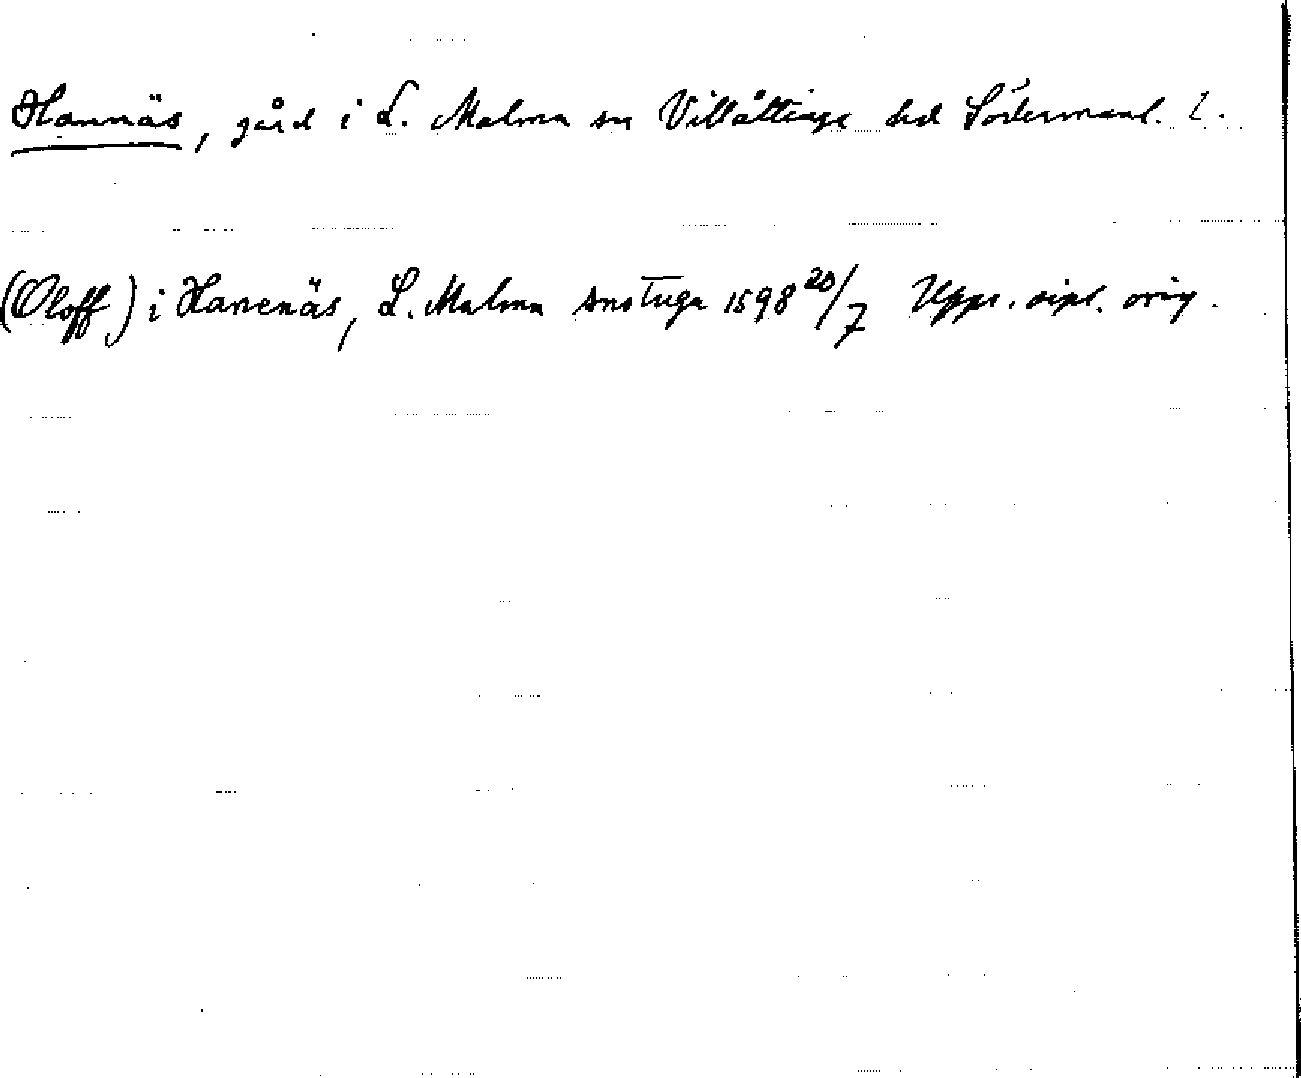 Hannäs, gård i L. Malma sn Villåttinge hd Södermanl. l.
(Oloff) i Hanenäs, L. Malma snstuga 1598 20/7 Upps. dipl. orig.